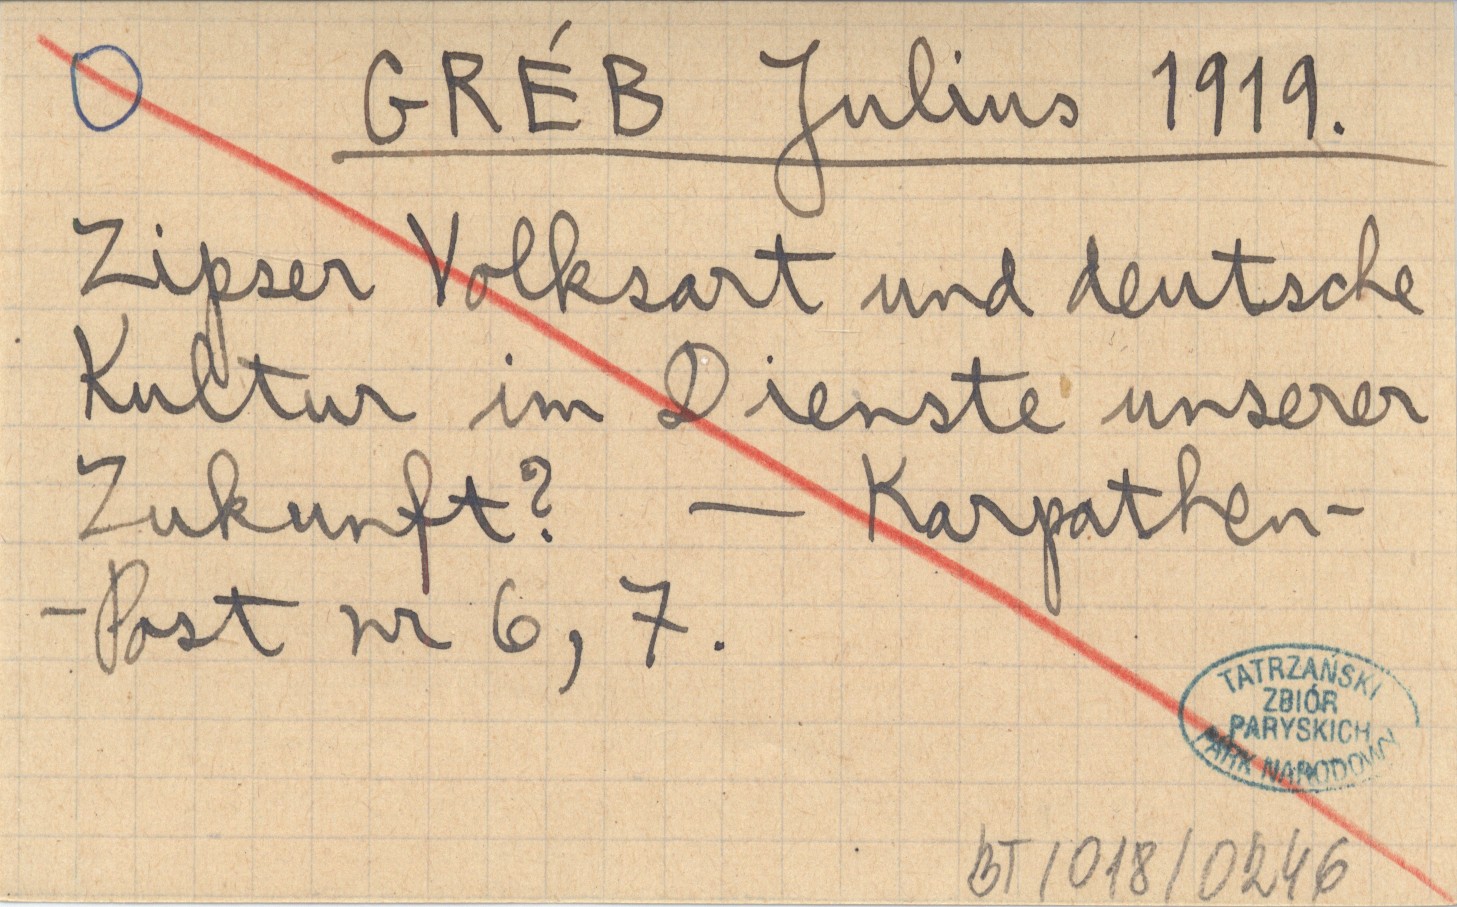 GRÉB Julius 1919.
Zipser Volksart und deutsche
Kultur im Dienste unserer
Zukunft? — Karpathen-
-Post nr 6, 7.
TATRZAŃSKI
ZBIÓR
PARYSKICH
PARK NARODOWY
BT/018/0246